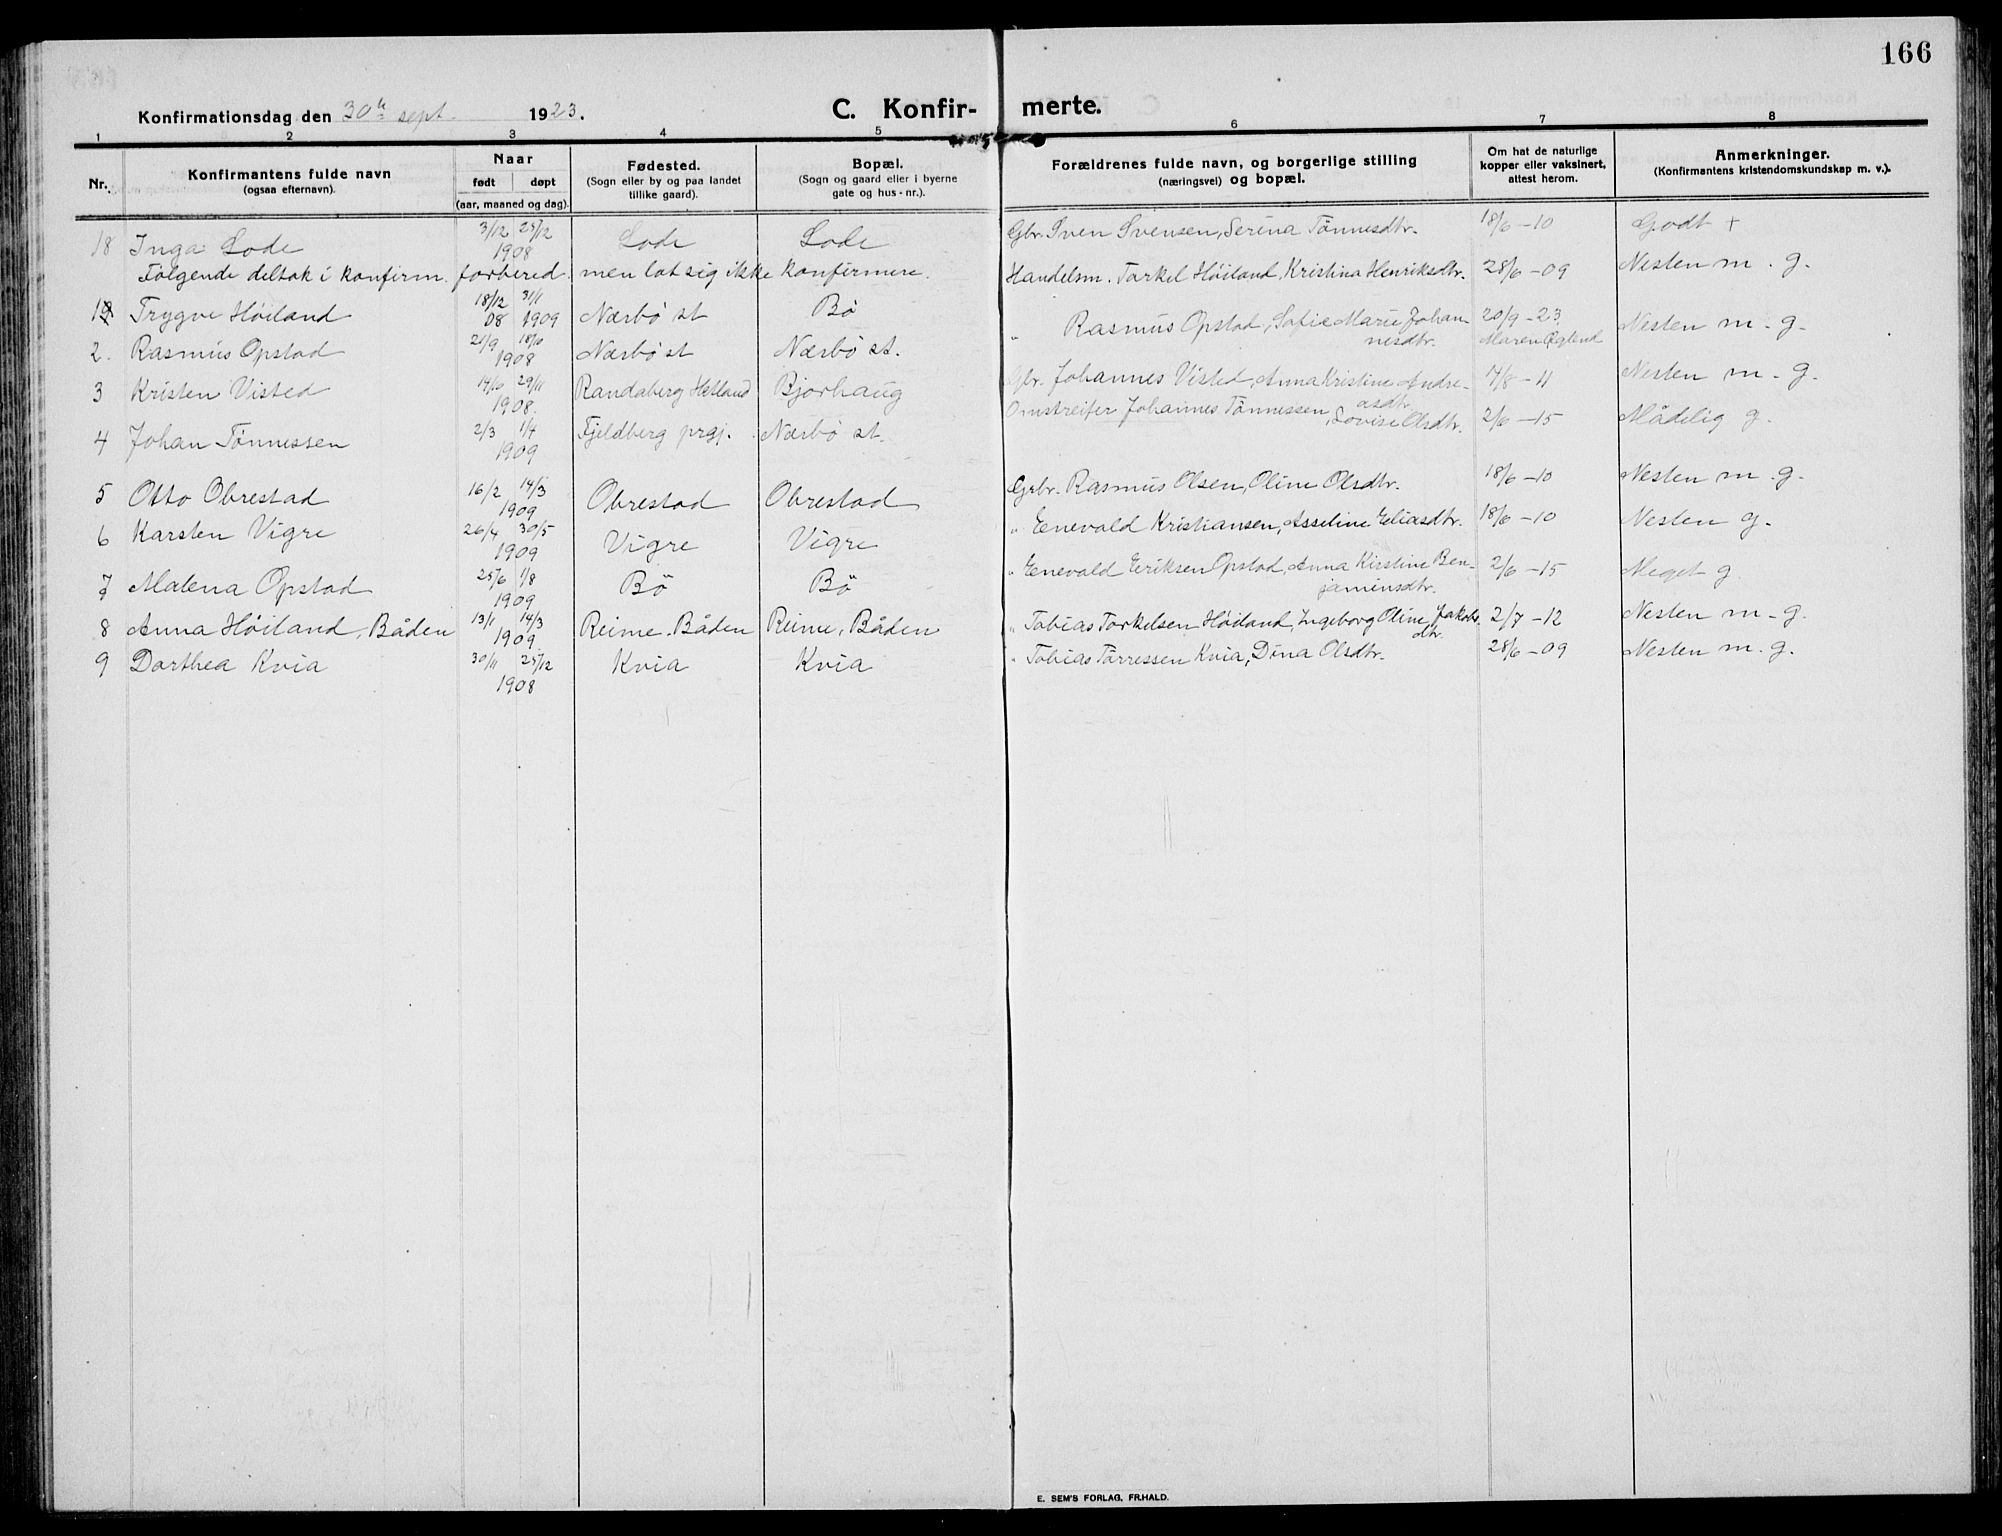 166
Konfirmationsdag den 30te sept. 1923.
C. Konfir- merte.
1 2 3 4 5 6 7 8
Nr. Konfirmantens fulde navn (ogsaa efternavn). Naar født døpt (aar, maaned og dag). Fødested. (Sogn eller by og paa landet tillike gaard). Bopæl. (Sogn og gaard eller i byerne gate og hus-nr.). Forældrenes fulde navn, og borgerlige stilling (næringsvei) og bopæl. Om hat de naturlige kopper eller vaksinert, attest herom. Anmerkninger. (Konfirmantens kristendomskundskap m. v.).
18 Inga Lode 3/12 25/12 1908 Lode Lode Gbr. Sven Svensen, Serina Tønnesdtr. 18/6 - 10 Godt +
Følgende deltok i konfirm. forbered. men lot sig ikke konfirmere.
1 Trygve Høiland 18/12 08 31/1 1909 Nærbø st Bø Handelsm. Torkel Høiland, Kristina Henriksdtr. 28/6 - 09 Nesten m. g.
2. Rasmus Opstad 21/9 18/10 1908 Nærbø st Nærbø st. " Rasmus Opstad, Sofie Marie Johannesdtr. 20/9 - 23 Maren Øglend Nesten m. g.
3 Kristen Visted 14/10 29/11 1908. Randaberg Hetland Bjorhaug Gbr. Johannes Visted, Anna Kristine Andreasdtr. 7/8 - 11 Nesten m. g.
4 Johan Tønnessen 2/3 1/4 1909 Fjeldberg prgj. Nærbø st. Omstreifer Johannes Tønnessen, Lovise Olsdtr. 2/6 - 15 Mådelig g.
5 Otto Obrestad 16/2 14/3 1909 Obrestad Obrestad Grbr. Rasmus Olsen, Oline Olsdtr. 18/6 - 10 Nesten m. g.
6 Karsten Vigre 26/4 30/5 1909 Vigre Vigre " Enevald Kristiansen, Asseline Eliasdtr. 18/6 - 10 Nesten g.
7 Malena Opstad 25/6 1/8 1909 Bø Bø " Enevald Eriksen Opstad, Anna Kirstine Benjaminsdtr. 2/6 - 15 Meget g.
8 Anna Høiland, Båden 13/1 14/3 1909 Reime. Båden Reime, Båden " Tobias Torkelsen Høiland, Ingeborg Oline Jakobsdtr. 2/7 - 12 Nesten m. g.
9 Dorthea Kvia 30/11 25/12 1908 Kvia Kvia " Tobias Tørressen Kvia, Dina Olsdtr. 28/6 - 09 Nesten m. g.
E. SEM'S FORLAG, FR.HALD.